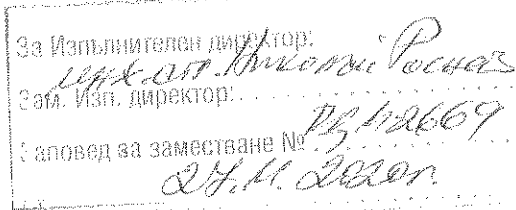 За Изпълнителен директор:
инж. Николай Роснев
Зам. Изп. директор:
Заповед за заместване № РД 11-2669
27.11.2020г.